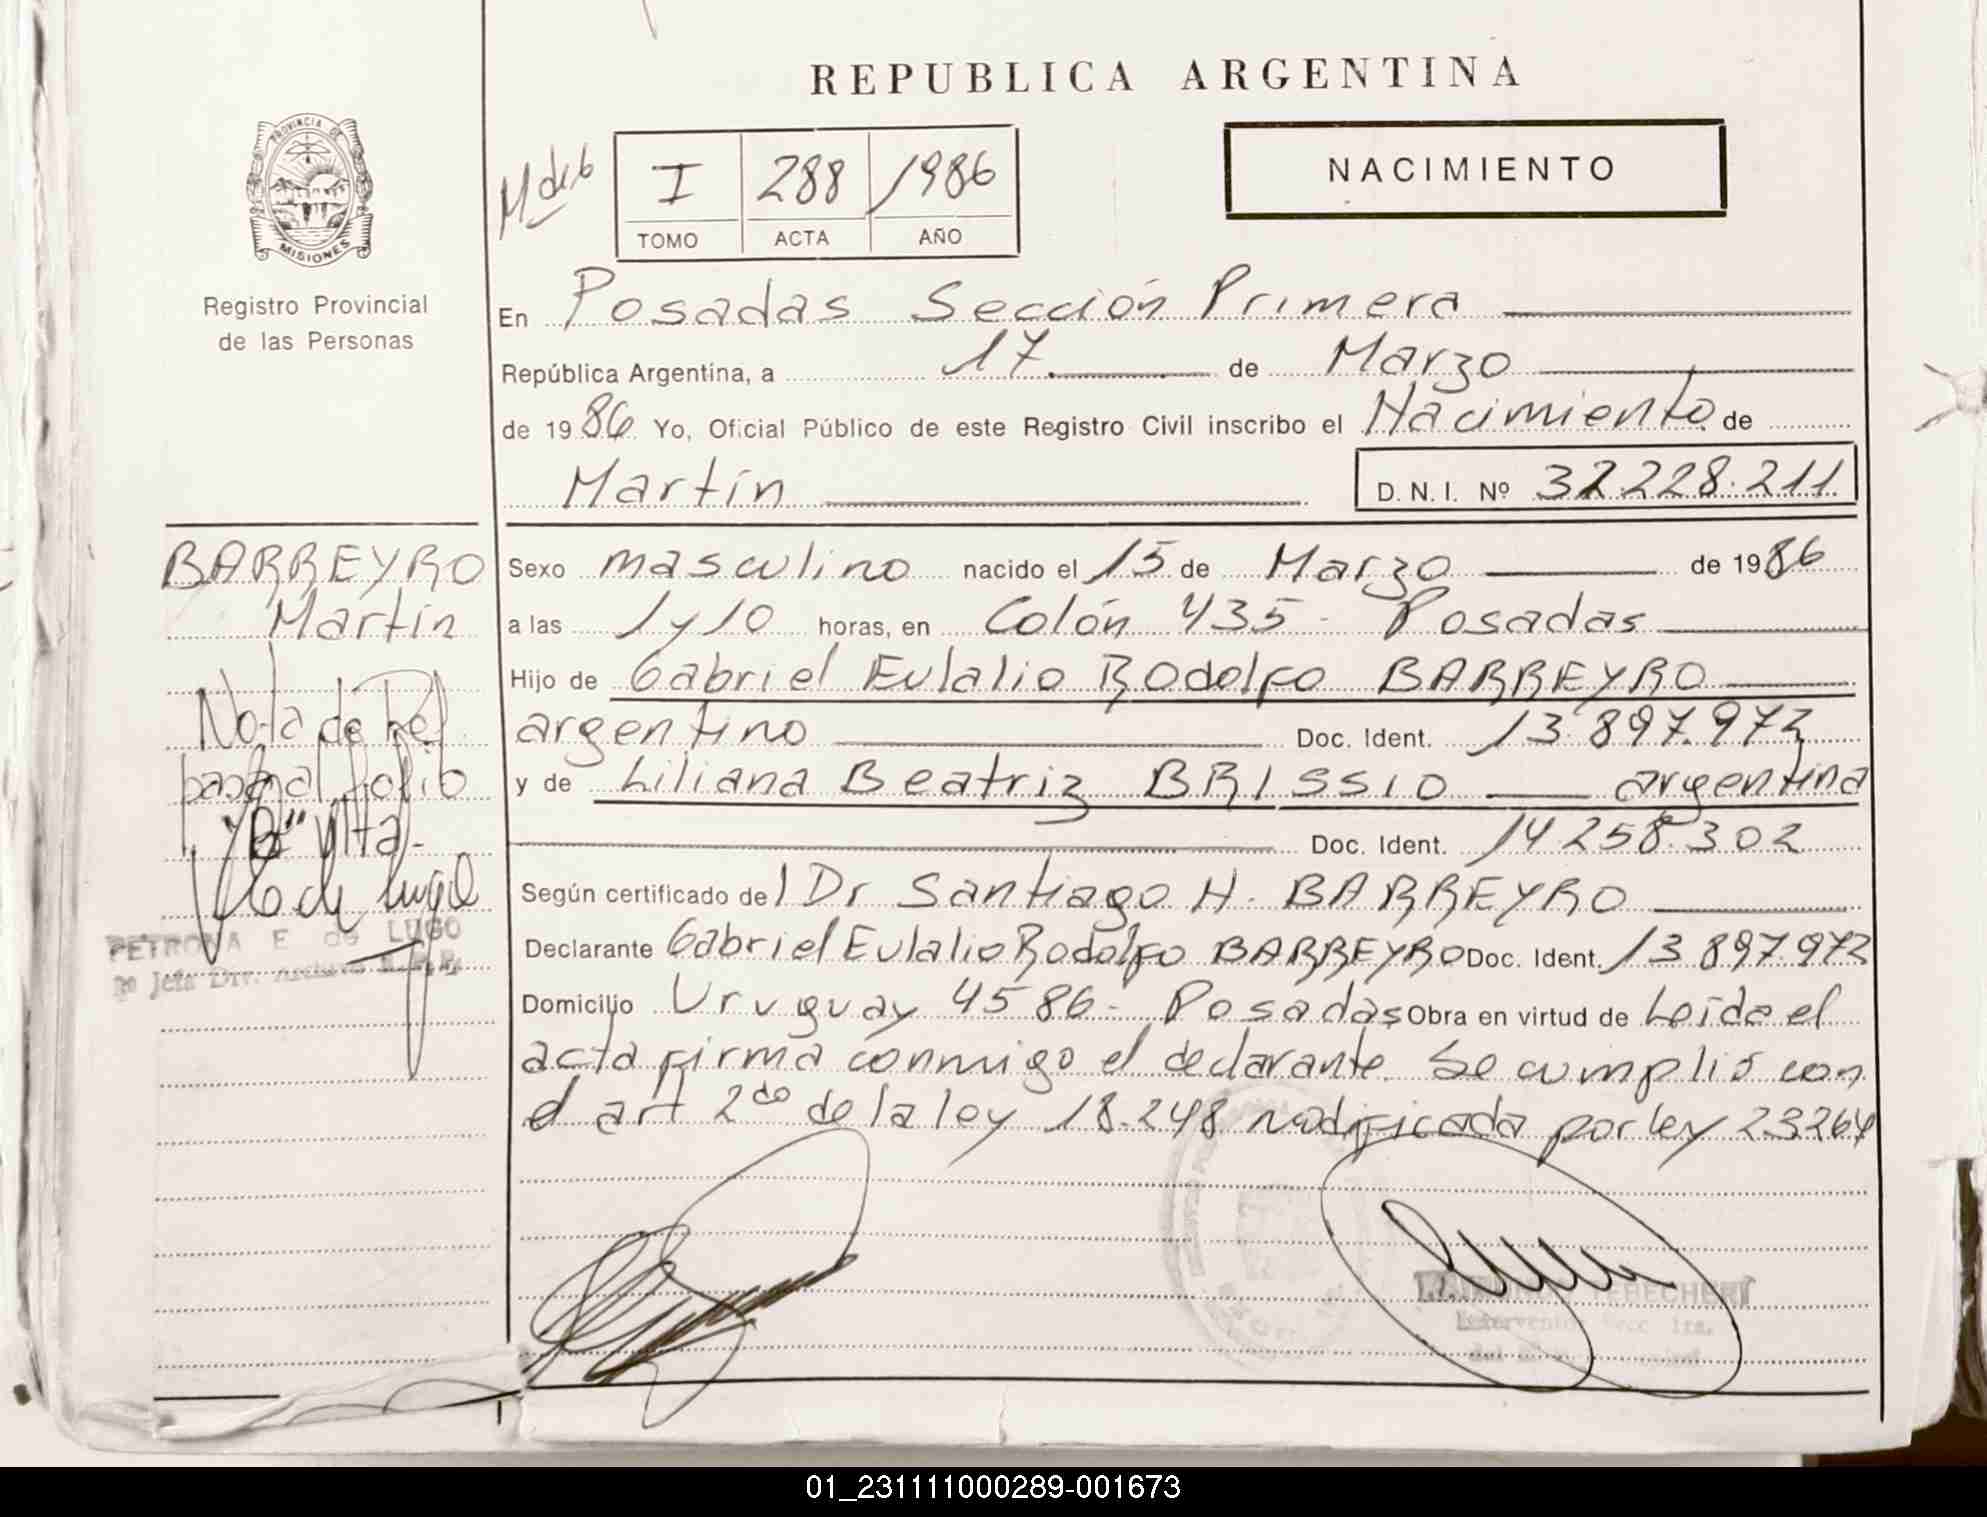 REPUBLICA ARGENTINA
PROVINCIA DE
MISIONES
Registro Provincial
de las Personas
I 288 1986
TOMO ACTA AÑO
NACIMIENTO
En Posadas Sección Primera
República Argentina, a 17 de Marzo
de 1986 Yo, Oficial Público de este Registro Civil inscribo el Nacimiento de
Martín D.N.I. Nº 32.228.211
BARREYRO
Martín
Nota de Ref.
al folio
vlta.
PETRONA E de LUGO
Jefa Div. Archivo
Sexo masculino nacido el 15 de Marzo de 1986
a las 1 y 10 horas, en Colón 435 - Posadas
Hijo de Gabriel Eulalio Rodolfo BARREYRO
argentino Doc. Ident. 13.897.973
y de Liliana Beatriz BRISSIO argentina
Doc. Ident. 14.258.302
Según certificado del Dr Santiago H. BARREYRO
Declarante Gabriel Eulalio Rodolfo BARREYRO Doc. Ident. 13.897.973
Domicilio Uruguay 4586 - Posadas Obra en virtud de Leída el
acta firma conmigo el declarante. Se cumplió con
el art 2do de la ley 18.248 modificada por ley 23264
01_231111000289-001673